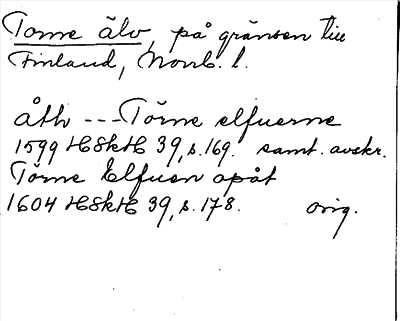 Torne älv, på gränsen till
Finland, Norrb. l.
åth --- Törne elfuerne
1599 HSkH 39, s. 169. samt. avskr.
Törne Elfuen opåt
1604 HSkH 39, s. 178. orig.